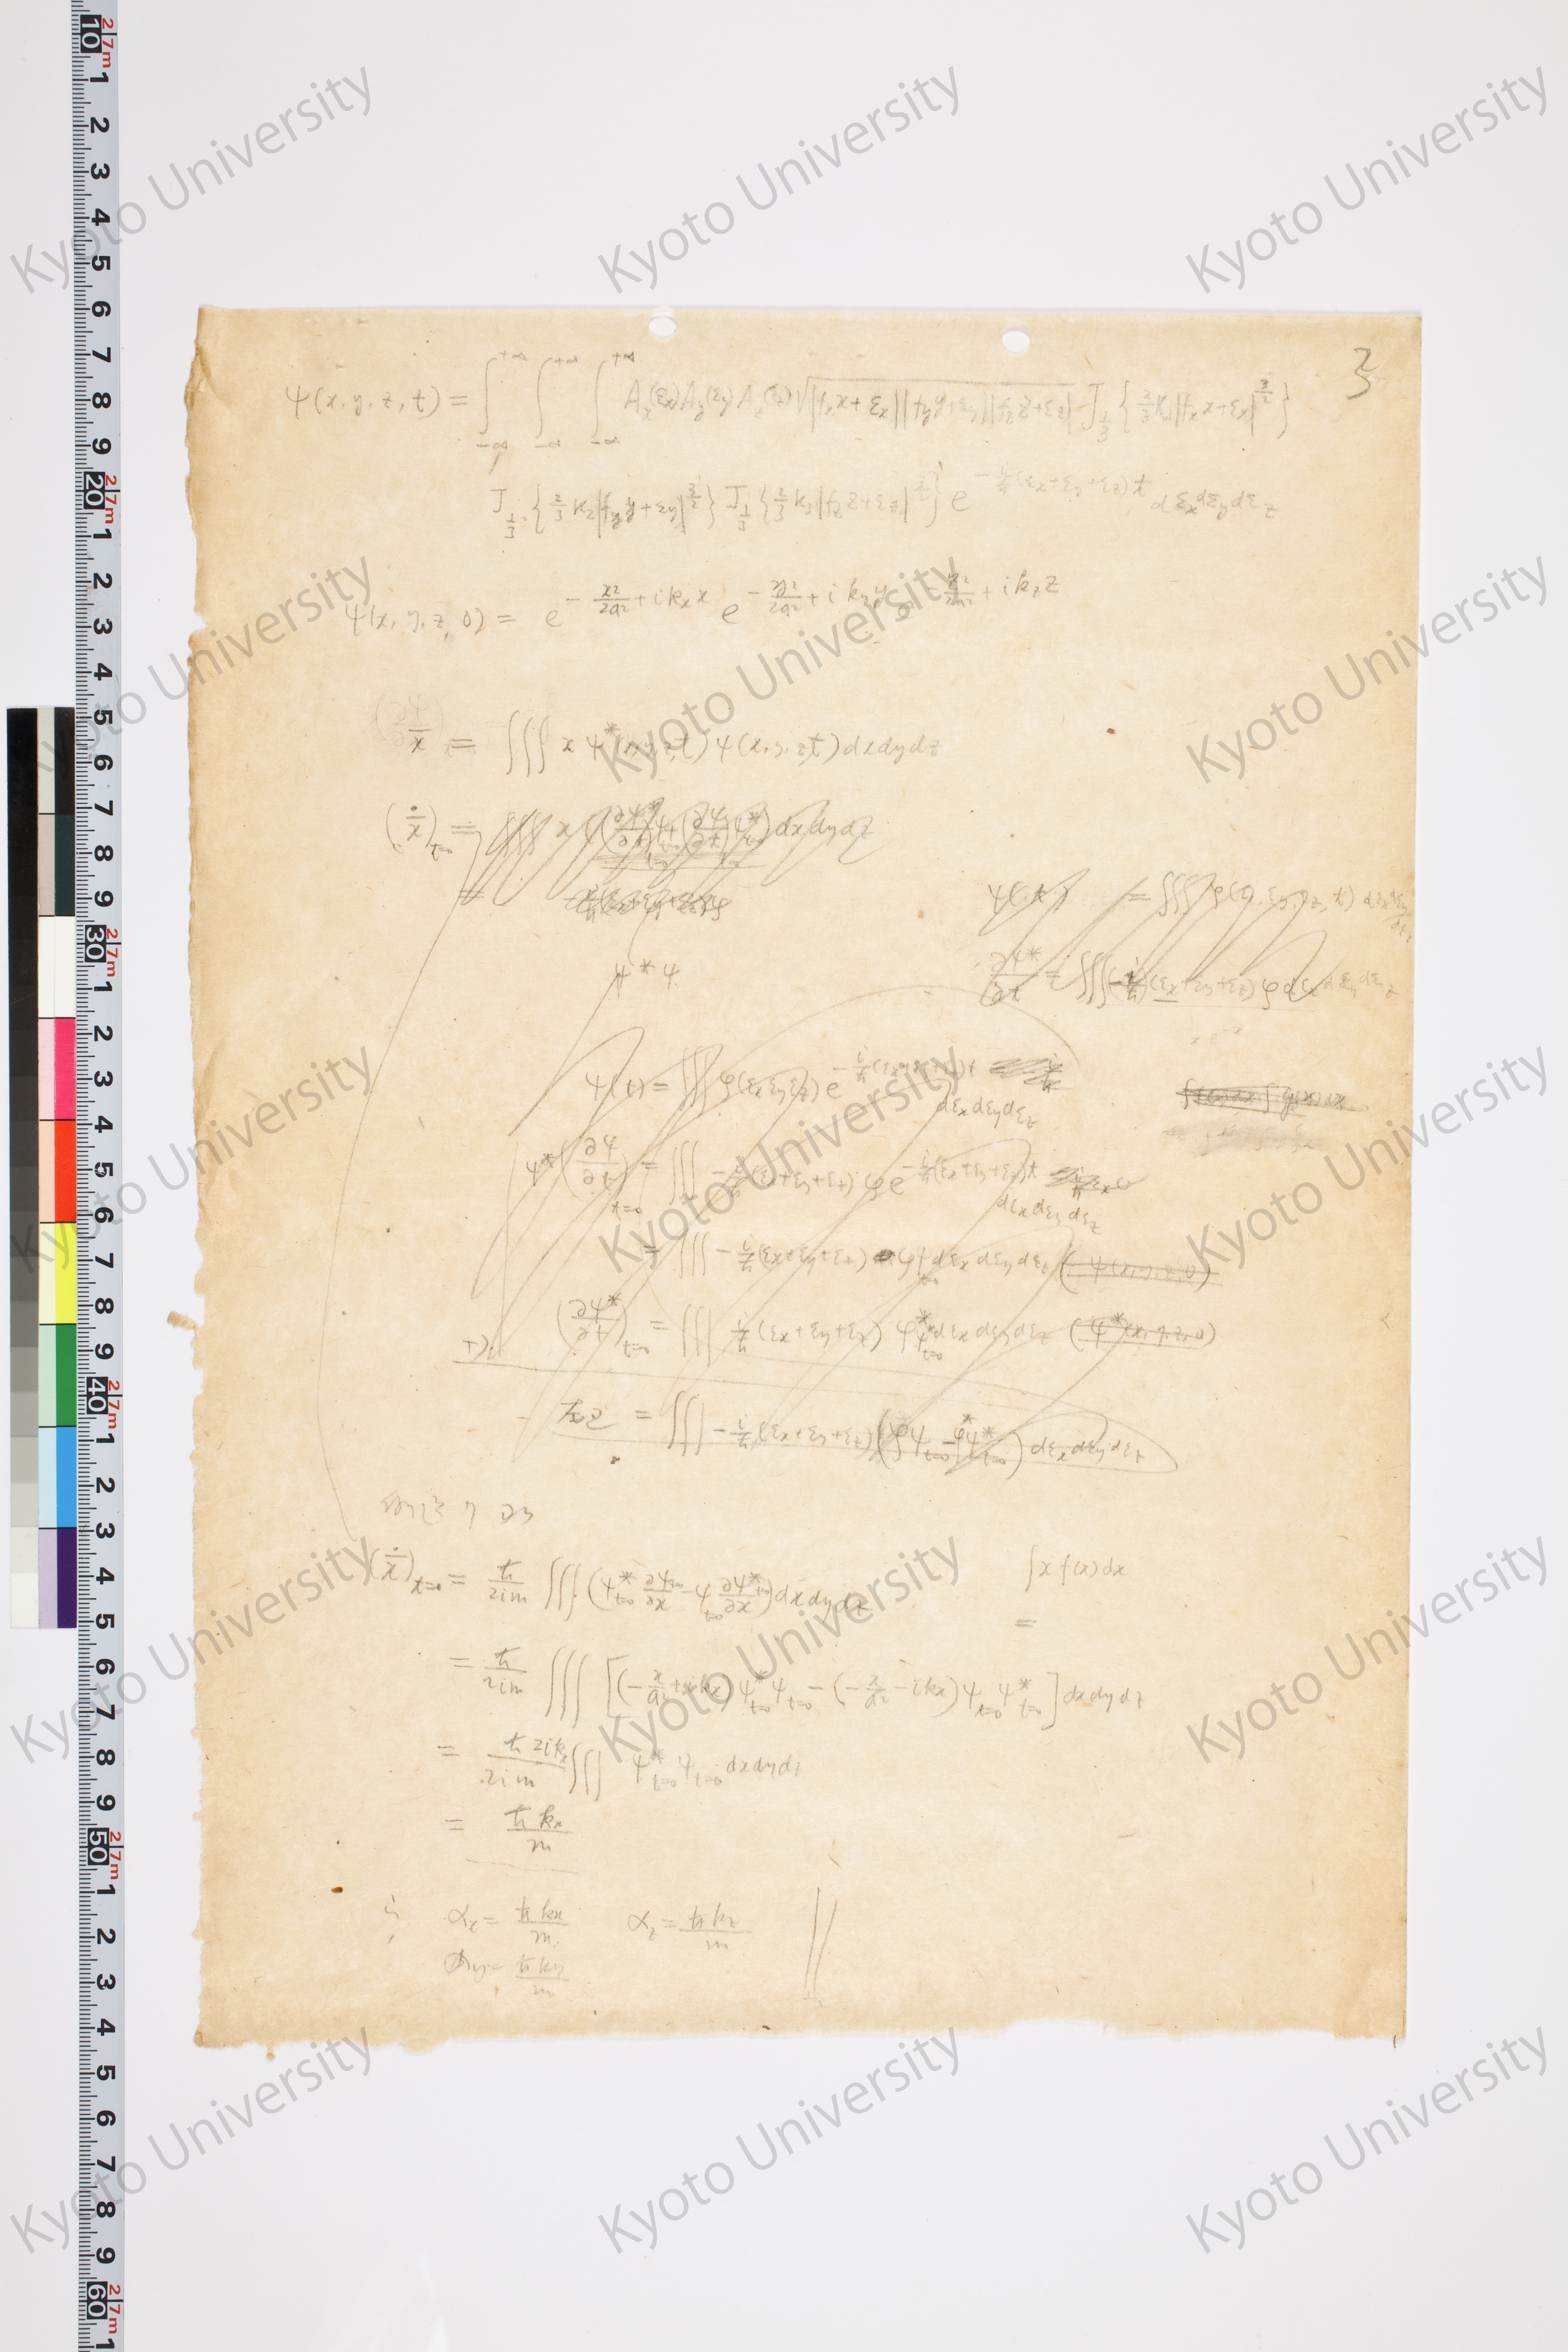 3
ψ(x, y, z, t) = ∫_{-∞}^{+∞} ∫_{-∞}^{+∞} ∫_{-∞}^{+∞} A_x(ε_x) A_y(ε_y) A_z(ε_z) √|f_x x+ε_x||f_y y+ε_y||f_z z+ε_z| J_{1/3} { 2/3 k_1 |f_x x+ε_x|^{3/2} }
J_{1/3} { 2/3 k_2 |f_y y+ε_y|^{3/2} } J_{1/3} { 2/3 k_3 |f_z z+ε_z|^{3/2} } e^{-i/ħ (ε_x+ε_y+ε_z) t} dε_x dε_y dε_z
ψ(x, y, z, 0) = e^{-x²/2a² + i k_x x} e^{-y²/2a² + i k_y y} e^{-z²/2a² + i k_z z}
x̄ = ∫∫∫ x ψ*(x, y, z, t) ψ(x, y, z, t) dx dy dz
(ẋ)_{t=0} = ∫∫∫ x ((∂ψ*/∂t)_{t=0} ψ_{t=0} + (∂ψ/∂t)_{t=0} ψ*_{t=0}) dx dy dz
=
ψ*ψ
ψ(t) = ∫∫∫ φ(ε_x, ε_y, ε_z, t) dε_x dε_y dε_z
∂ψ*/∂t = ∫∫∫ (-i/ħ)(ε_x+ε_y+ε_z) φ dε_x dε_y dε_z
∫f(x)dx ∫g(x)dx
ψ(t) = ∫∫∫ φ(ε_x ε_y ε_z) e^{-i/ħ (ε_x+ε_y+ε_z) t}
dε_x dε_y dε_z
ψ* (∂ψ/∂t)_{t=0} = ∫∫∫ -i/ħ (ε_x+ε_y+ε_z) φ e^{-i/ħ (ε_x+ε_y+ε_z) t}
dε_x dε_y dε_z
= ∫∫∫ -i/ħ (ε_x+ε_y+ε_z) φ ψ_{t=0} dε_x dε_y dε_z (ψ(x, y, z, 0))
+) (∂ψ*/∂t)_{t=0} = ∫∫∫ i/ħ (ε_x+ε_y+ε_z) φ* ψ*_{t=0} dε_x dε_y dε_z (ψ*(x, y, z, 0))
= ∫∫∫ -i/ħ (ε_x+ε_y+ε_z) (φψ_{t=0} - φ*ψ*_{t=0}) dε_x dε_y dε_z
(ẋ)_{t=0} = ħ/2im ∫∫∫ (ψ*_{t=0} ∂ψ_{t=0}/∂x - ψ_{t=0} ∂ψ*_{t=0}/∂x) dx dy dz
∫x f(x) dx
=
= ħ/2im ∫∫∫ [(-x/a² + i k_x) ψ*_{t=0} ψ_{t=0} - (-x/a² - i k_x) ψ_{t=0} ψ*_{t=0}] dx dy dz
= ħ 2i k_x/2im ∫∫∫ ψ*_{t=0} ψ_{t=0} dx dy dz
= ħ k_x/m
∴ α_x = ħ k_x/m α_z = ħ k_z/m
α_y = ħ k_y/m